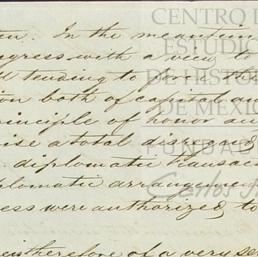 In the meantime
ngress with a view to
tending to pro
on both of capital an
rinciple of honor an
ise a total disreg
diplomatic transac
plomatic arrangemen
ess were authorized, to
therefore of a very se
CENTRO
ESTUDIO
DE HISTOR
DE MEXIC
FUND
Carlos